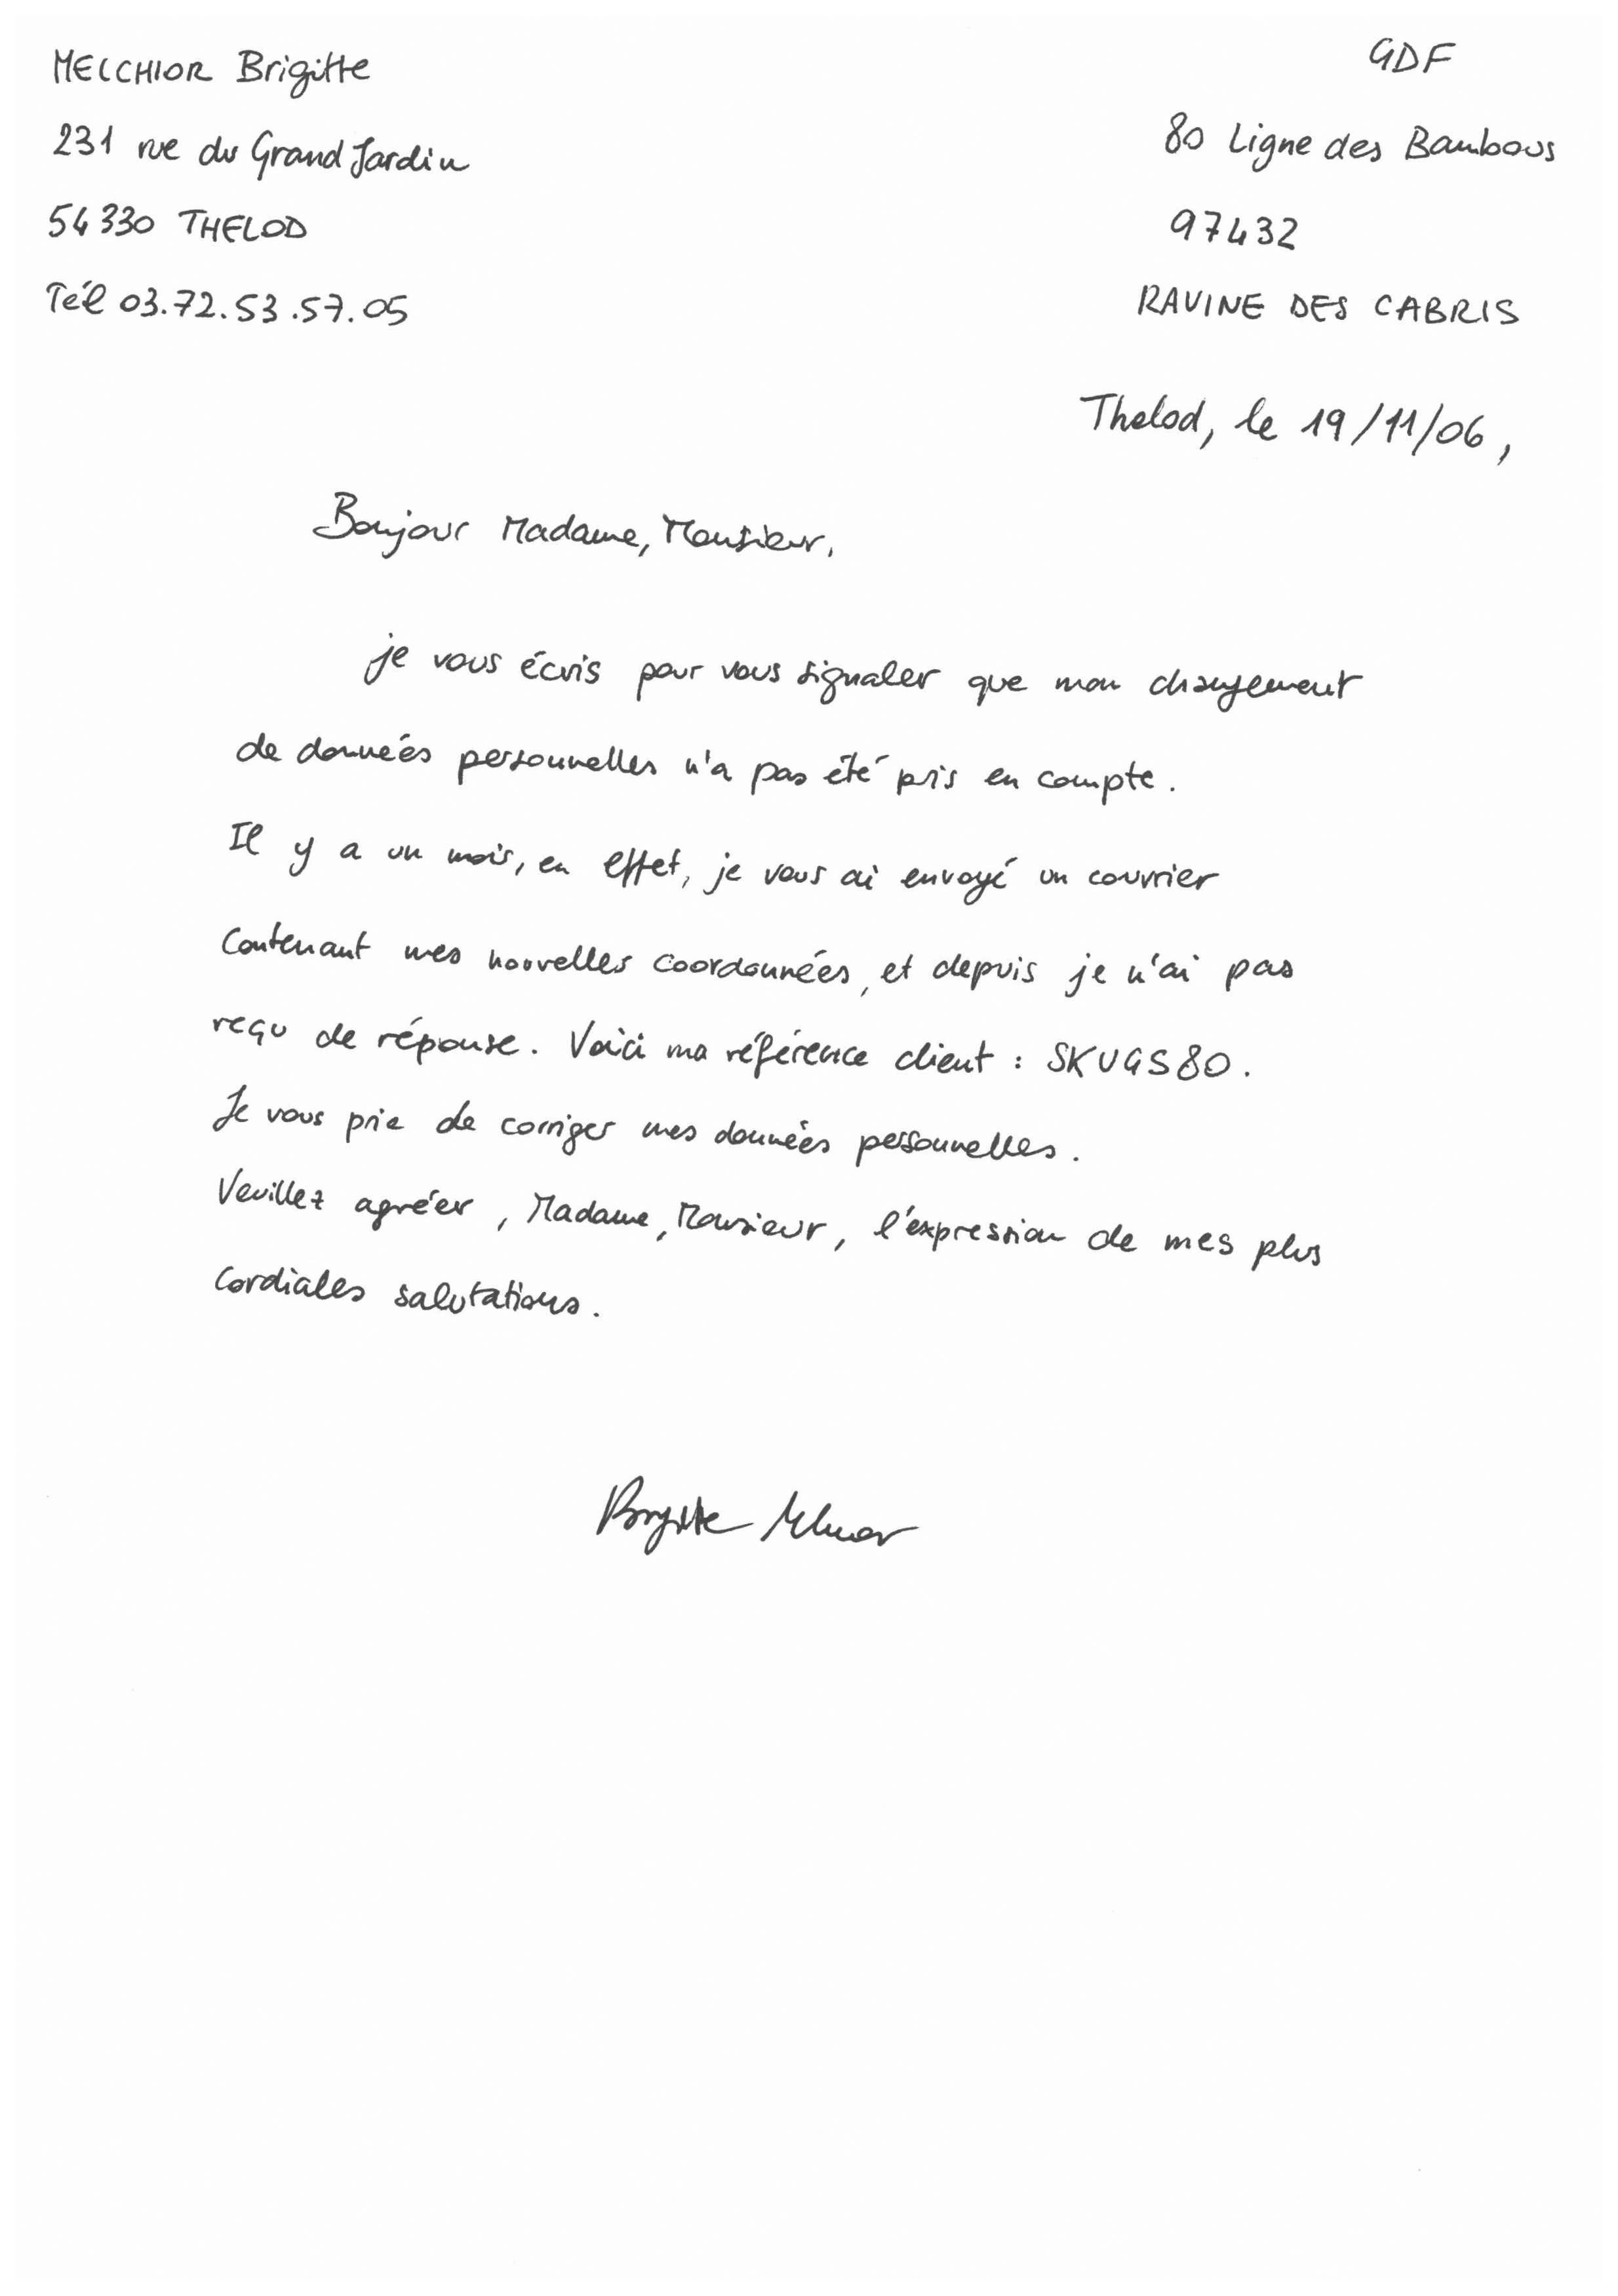 MELCHIOR Brigitte
231 rue du Grand Jardin
54330 THELOD
Tél 03.72.53.57.05
GDF
80 Ligne des Bambous
97432
RAVINE DES CABRIS
Thelod, le 19/11/06,
Bonjour Madame, Monsieur,
je vous écris pour vous signaler que mon changement
de données personnelles n'a pas été pris en compte.
Il y a un mois, en effet, je vous ai envoyé un courrier
contenant mes nouvelles coordonnées, et depuis je n'ai pas
reçu de réponse. Voici ma référence client : SKUGS80.
Je vous prie de corriger mes données personnelles.
Veuillez agréer, Madame, Monsieur, l'expression de mes plus
cordiales salutations.
Brigitte